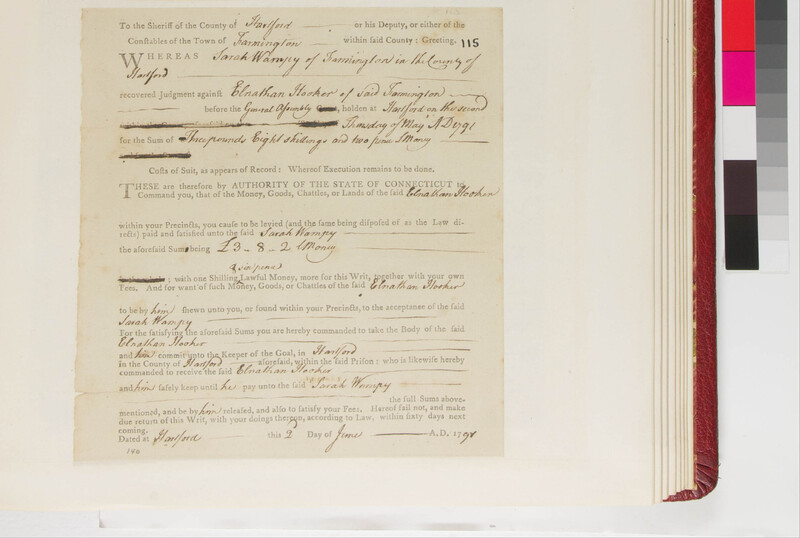 To the Sheriff of the County of Hartford or his Deputy, or either of the
Constables of the Town of Farmington within said County: Greeting.
115
WHEREAS Sarah Wampy of Farmington in the County of
Hartford
recovered Judgment against Elnathan Hooker of said Farmington
before the General Assembly, holden at Hartford on the second
Thursday of May AD 1791
for the Sum of Three pounds Eight shillings and two pence Money
Costs of Suit, as appears of Record: Whereof Execution remains to be done.
THESE are therefore by AUTHORITY OF THE STATE OF CONNECTICUT to
Command you, that of the Money, Goods, Chattles, or Lands of the said Elnathan Hooker
within your Precincts, you cause to be levied (and the same being disposed of as the Law di-
rects) paid and satisfied unto the said Sarah Wampy
the aforesaid Sum being £3-8-2 Money
& sixpence
; with one Shilling Lawful Money, more for this Writ, together with your own
Fees. And for want of such Money, Goods, or Chattles of the said Elnathan Hooker
to be by him shewn unto you, or found within your Precincts, to the acceptance of the said
Sarah Wampy
For the satisfying the aforesaid Sums you are hereby commanded to take the Body of the said
Elnathan Hooker
and him commit unto the Keeper of the Goal, in Hartford
in the County of Hartford aforesaid, within the said Prison: who is likewise hereby
commanded to receive the said Elnathan Hooker
and him safely keep until he pay unto the said Sarah Wampy
the full Sums above-
mentioned, and be by him released, and also to satisfy your Fees. Hereof fail not, and make
due return of this Writ, with your doings thereon, according to Law, within sixty days next
coming.
Dated at Hartford this 2d Day of June A.D. 1791